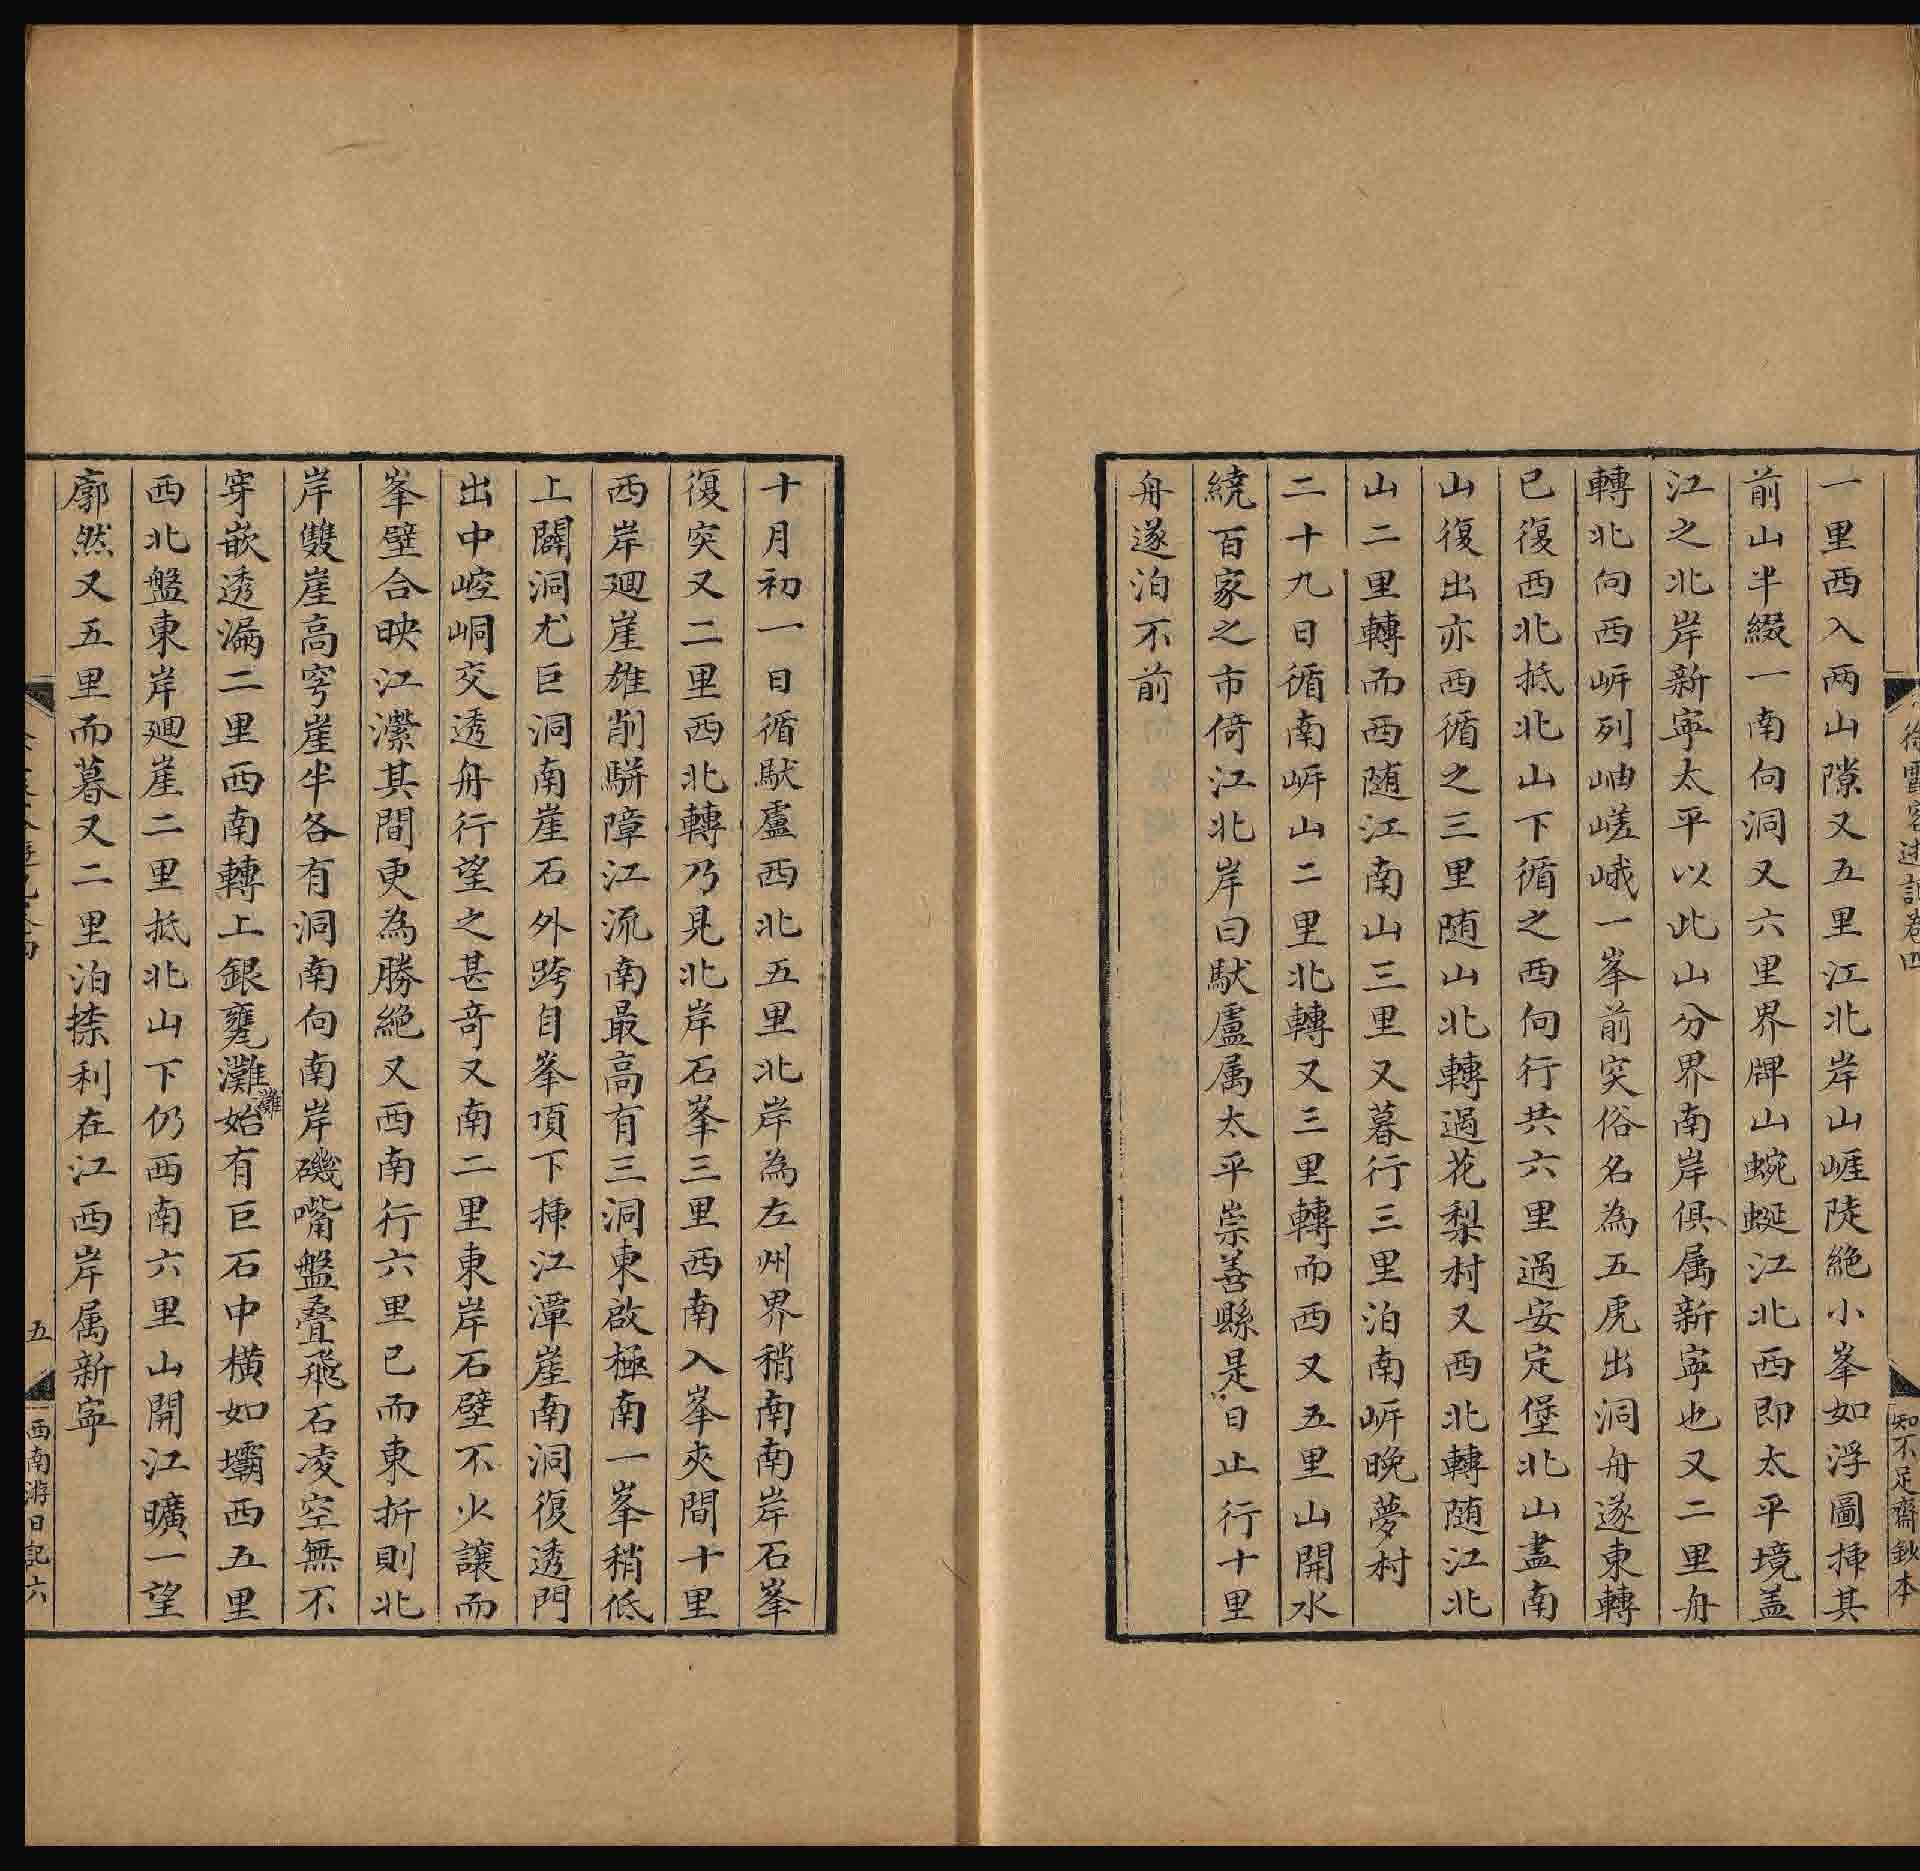 徐霞客遊記卷四
知不足齋鈔本
一里西入两山隙又五里江北岸山崕陡絶小峯如浮圖揷其
前山半綴一南向洞又六里界牌山蜿蜒江北西即太平境盖
江之北岸新寧太平以此山分界南岸俱属新寧也又二里舟
轉北向西岍列岫嵯峨一峯前突俗名為五虎出洞舟遂東轉
已復西北抵北山下循之西向行共六里過安定堡北山盡南
山復出亦西循之三里随山北轉過花梨村又西北轉随江北
山二里轉而西随江南山三里又暮行三里泊南岍晚夢村
二十九日循南岍山二里北轉又三里轉而西又五里山開水
繞百家之市倚江北岸曰馱盧属太平崇善縣是日止行十里
舟遂泊不前
十月初一日循馱盧西北五里北岸為左州界稍南南岸石峯
復突又二里西北轉乃見北岸石峯三里西南入峯夾間十里
西岸廻崖雄削駢障江流南最高有三洞東啟極南一峯稍低
上闢洞尤巨洞南崖石外跨自峯頂下揷江潭崖南洞復透門
出中崆峒交透舟行望之甚奇又南二里東岸石壁不少讓而
峯壁合映江瀠其間更為勝絶又西南行六里已而東折則北
岸雙崖高穹崖半各有洞南向南岸磯嘴盤叠飛石凌空無不
穿嵌透漏二里西南轉上銀甕灘灘始有巨石中横如壩西五里
西北盤東岸廻崖二里抵北山下仍西南六里山開江曠一望
廓然又五里而暮又二里泊捺利在江西岸属新寧
五
西南游日記六